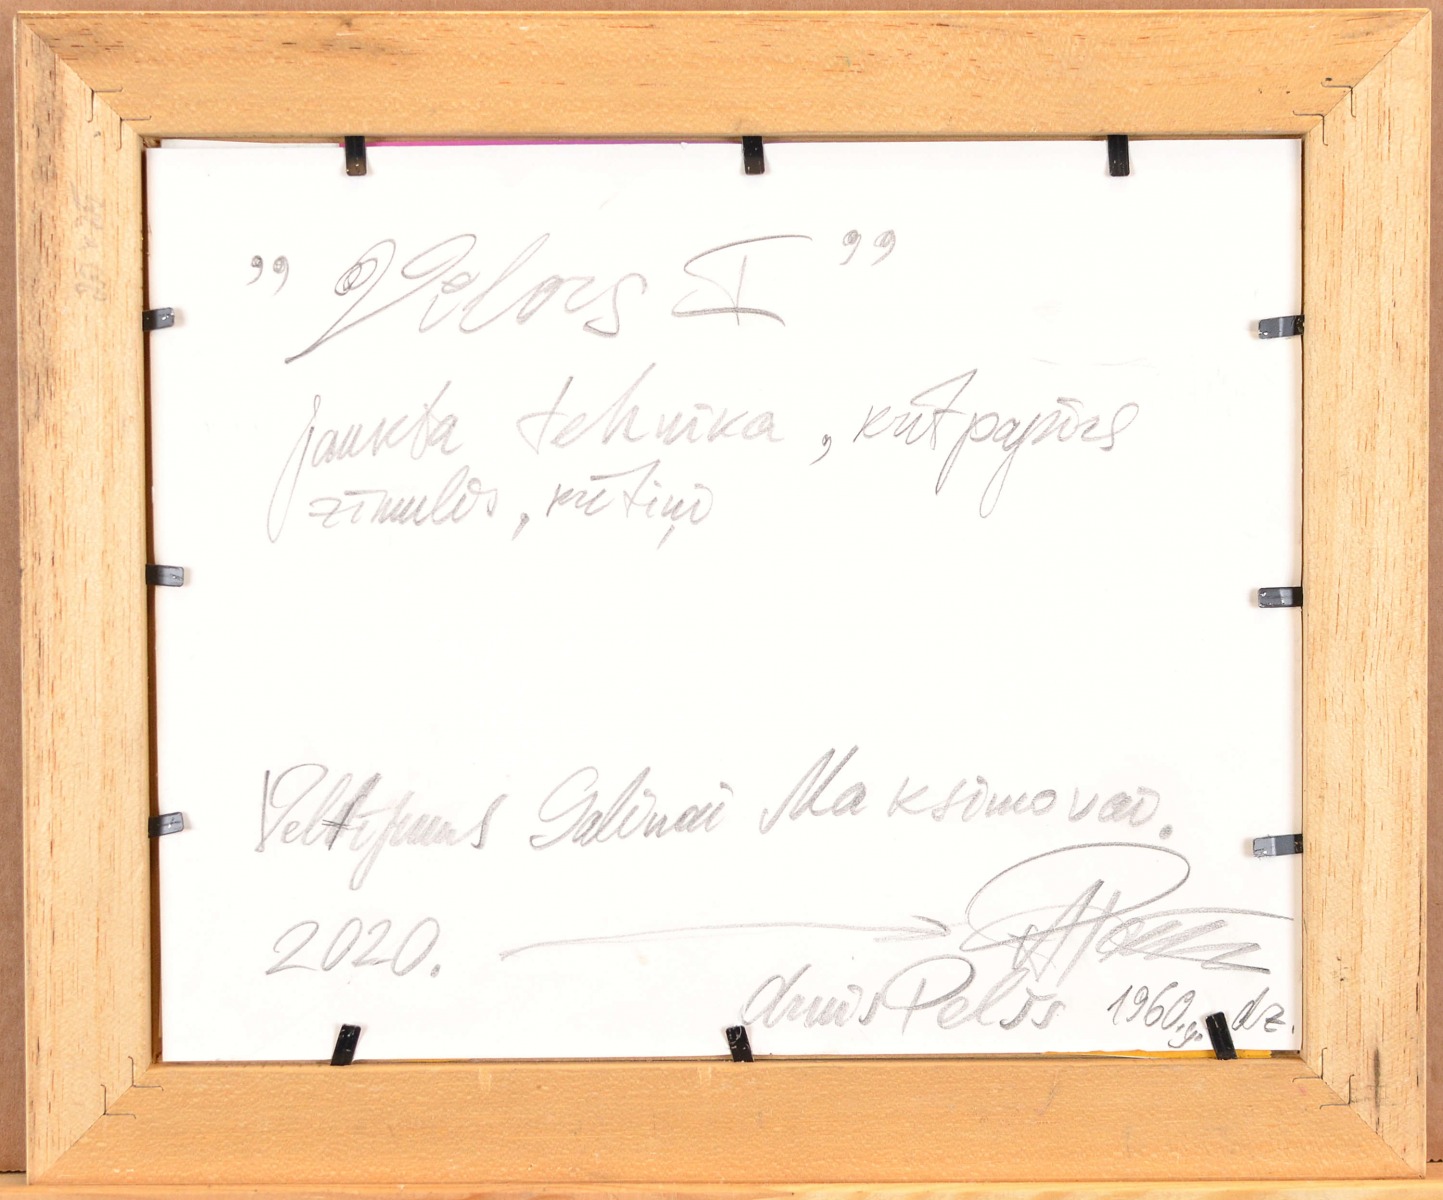 „ Velors I ”
jaukta tehnika, krītpapīrs
zīmulis, krītiņi
Veltījums Galinai Maksimovai.
2020.
Pelšs 1960.g. dz.